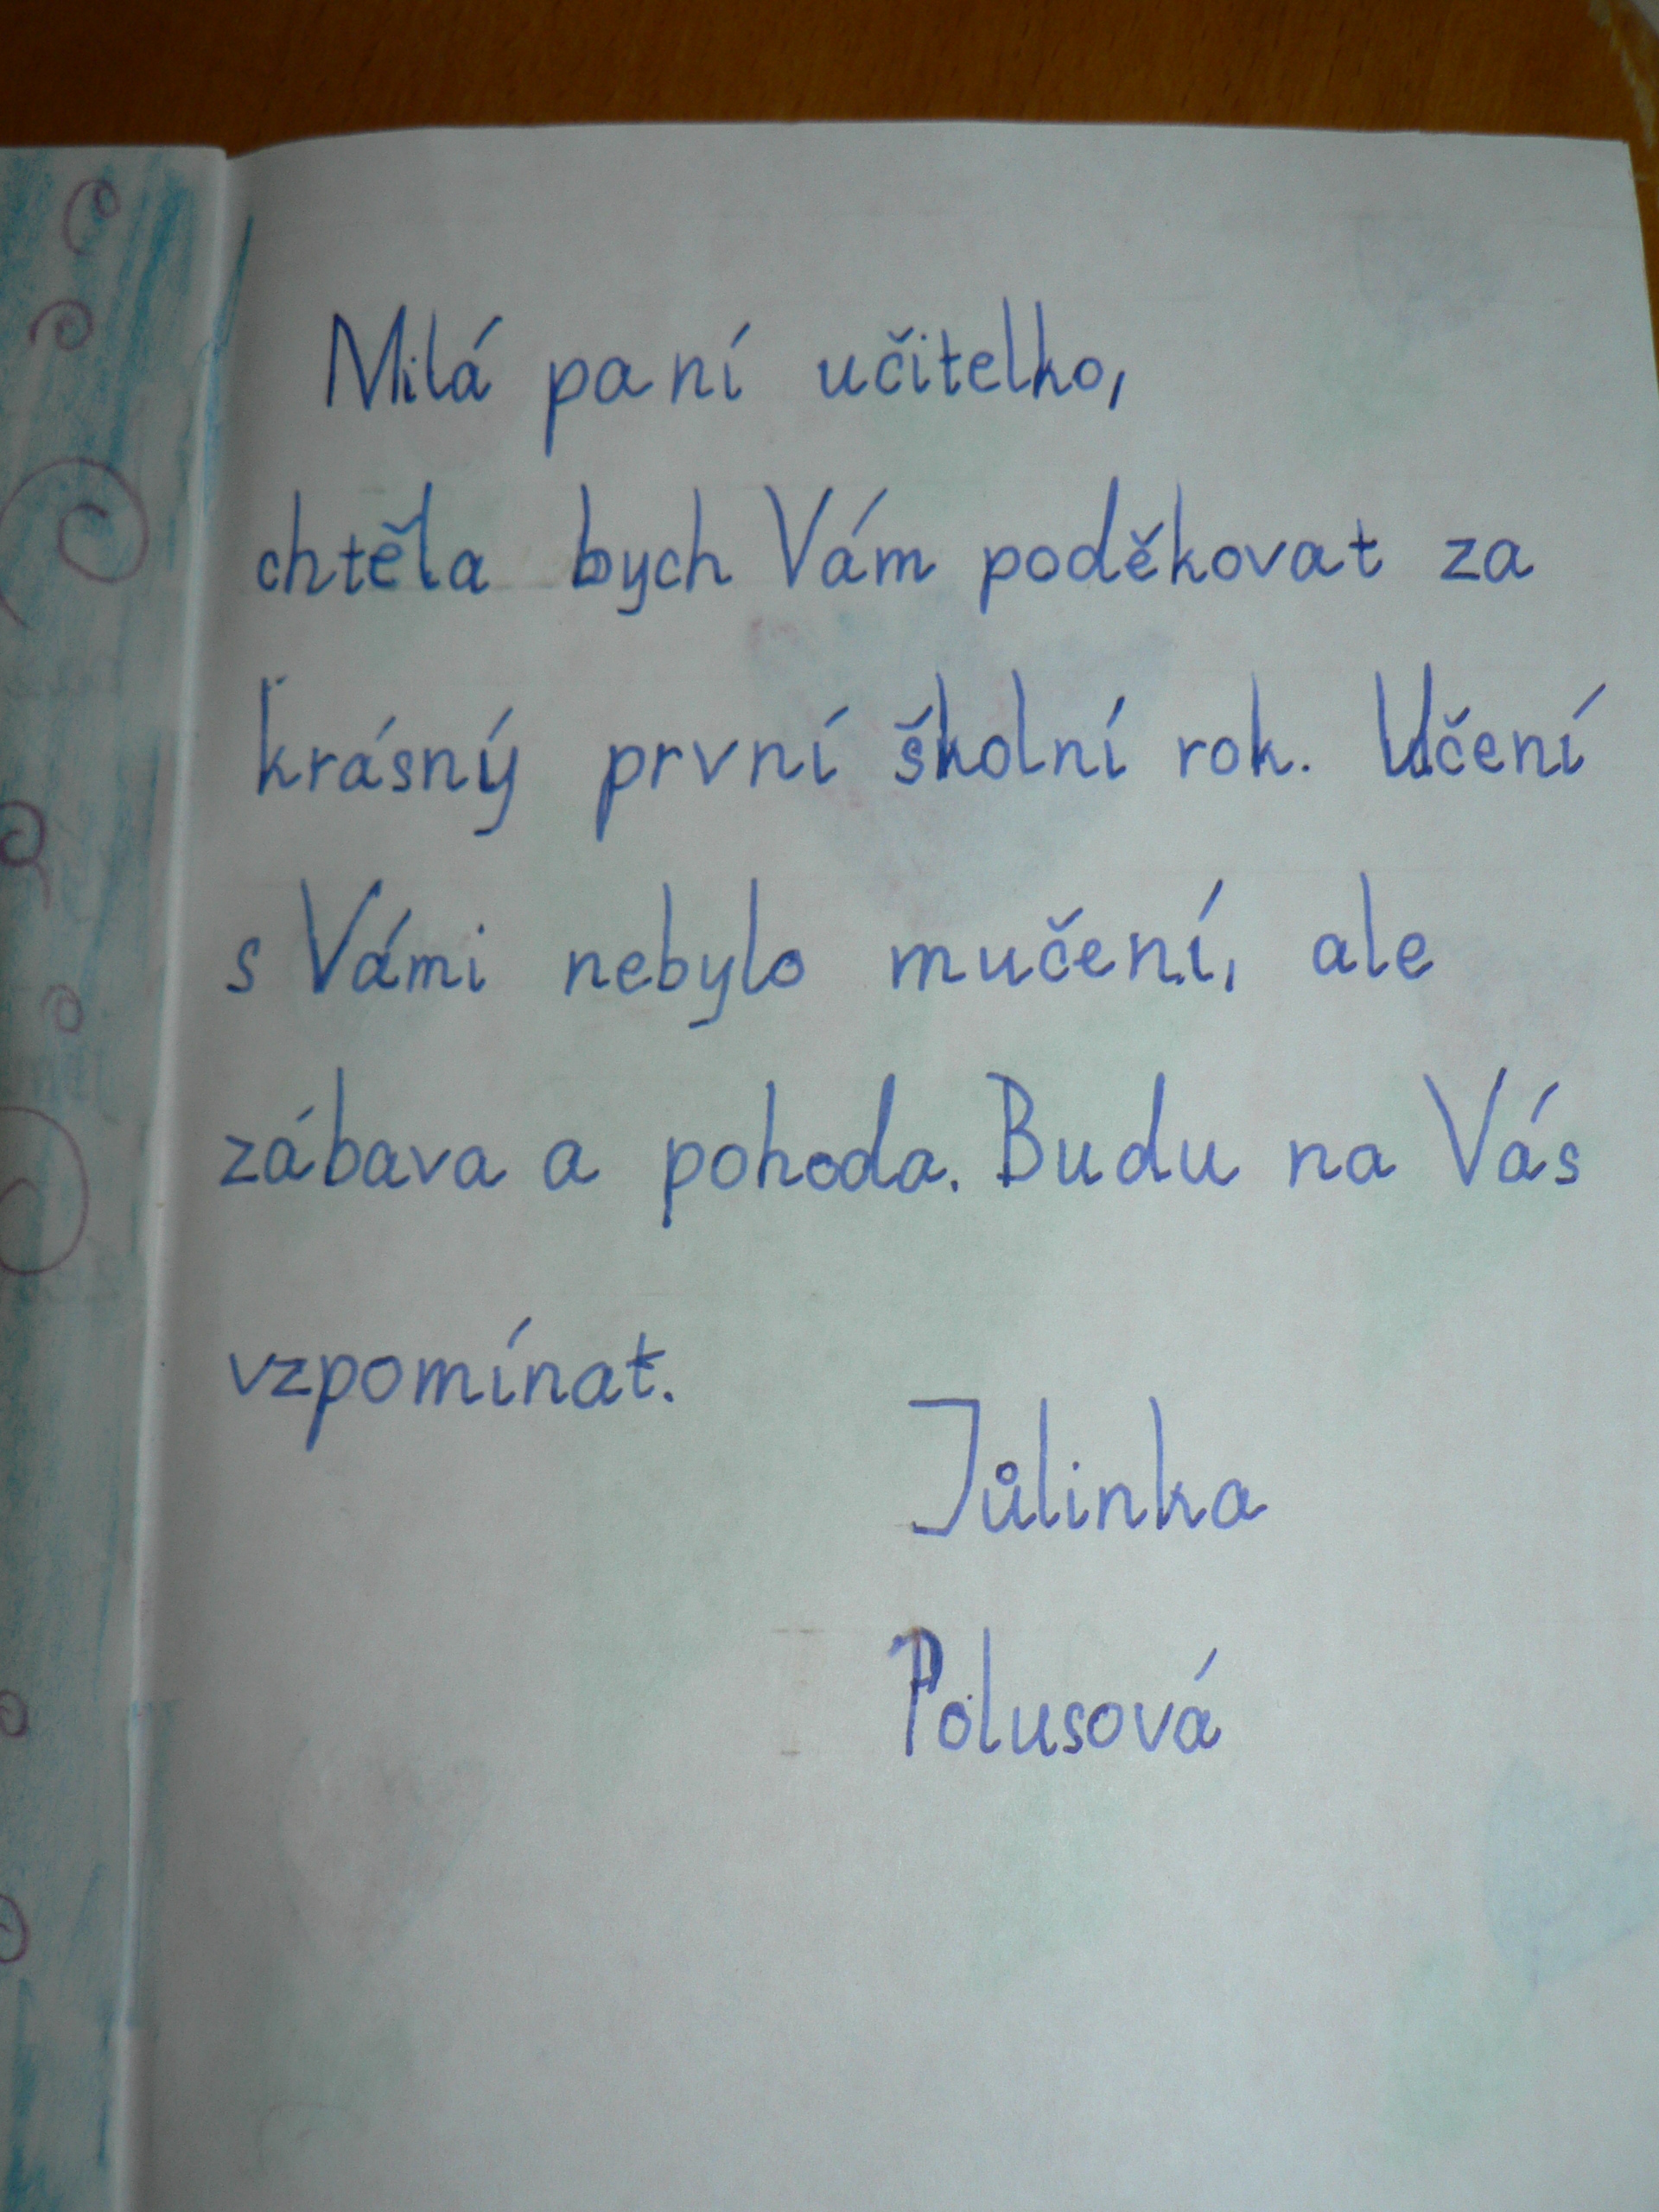 Milá paní učitelko,
chtěla bych Vám poděkovat za
krásný první školní rok. Učení
s Vámi nebylo mučení, ale
zábava a pohoda. Budu na Vás
vzpomínat.
Jůlinka
Polusová